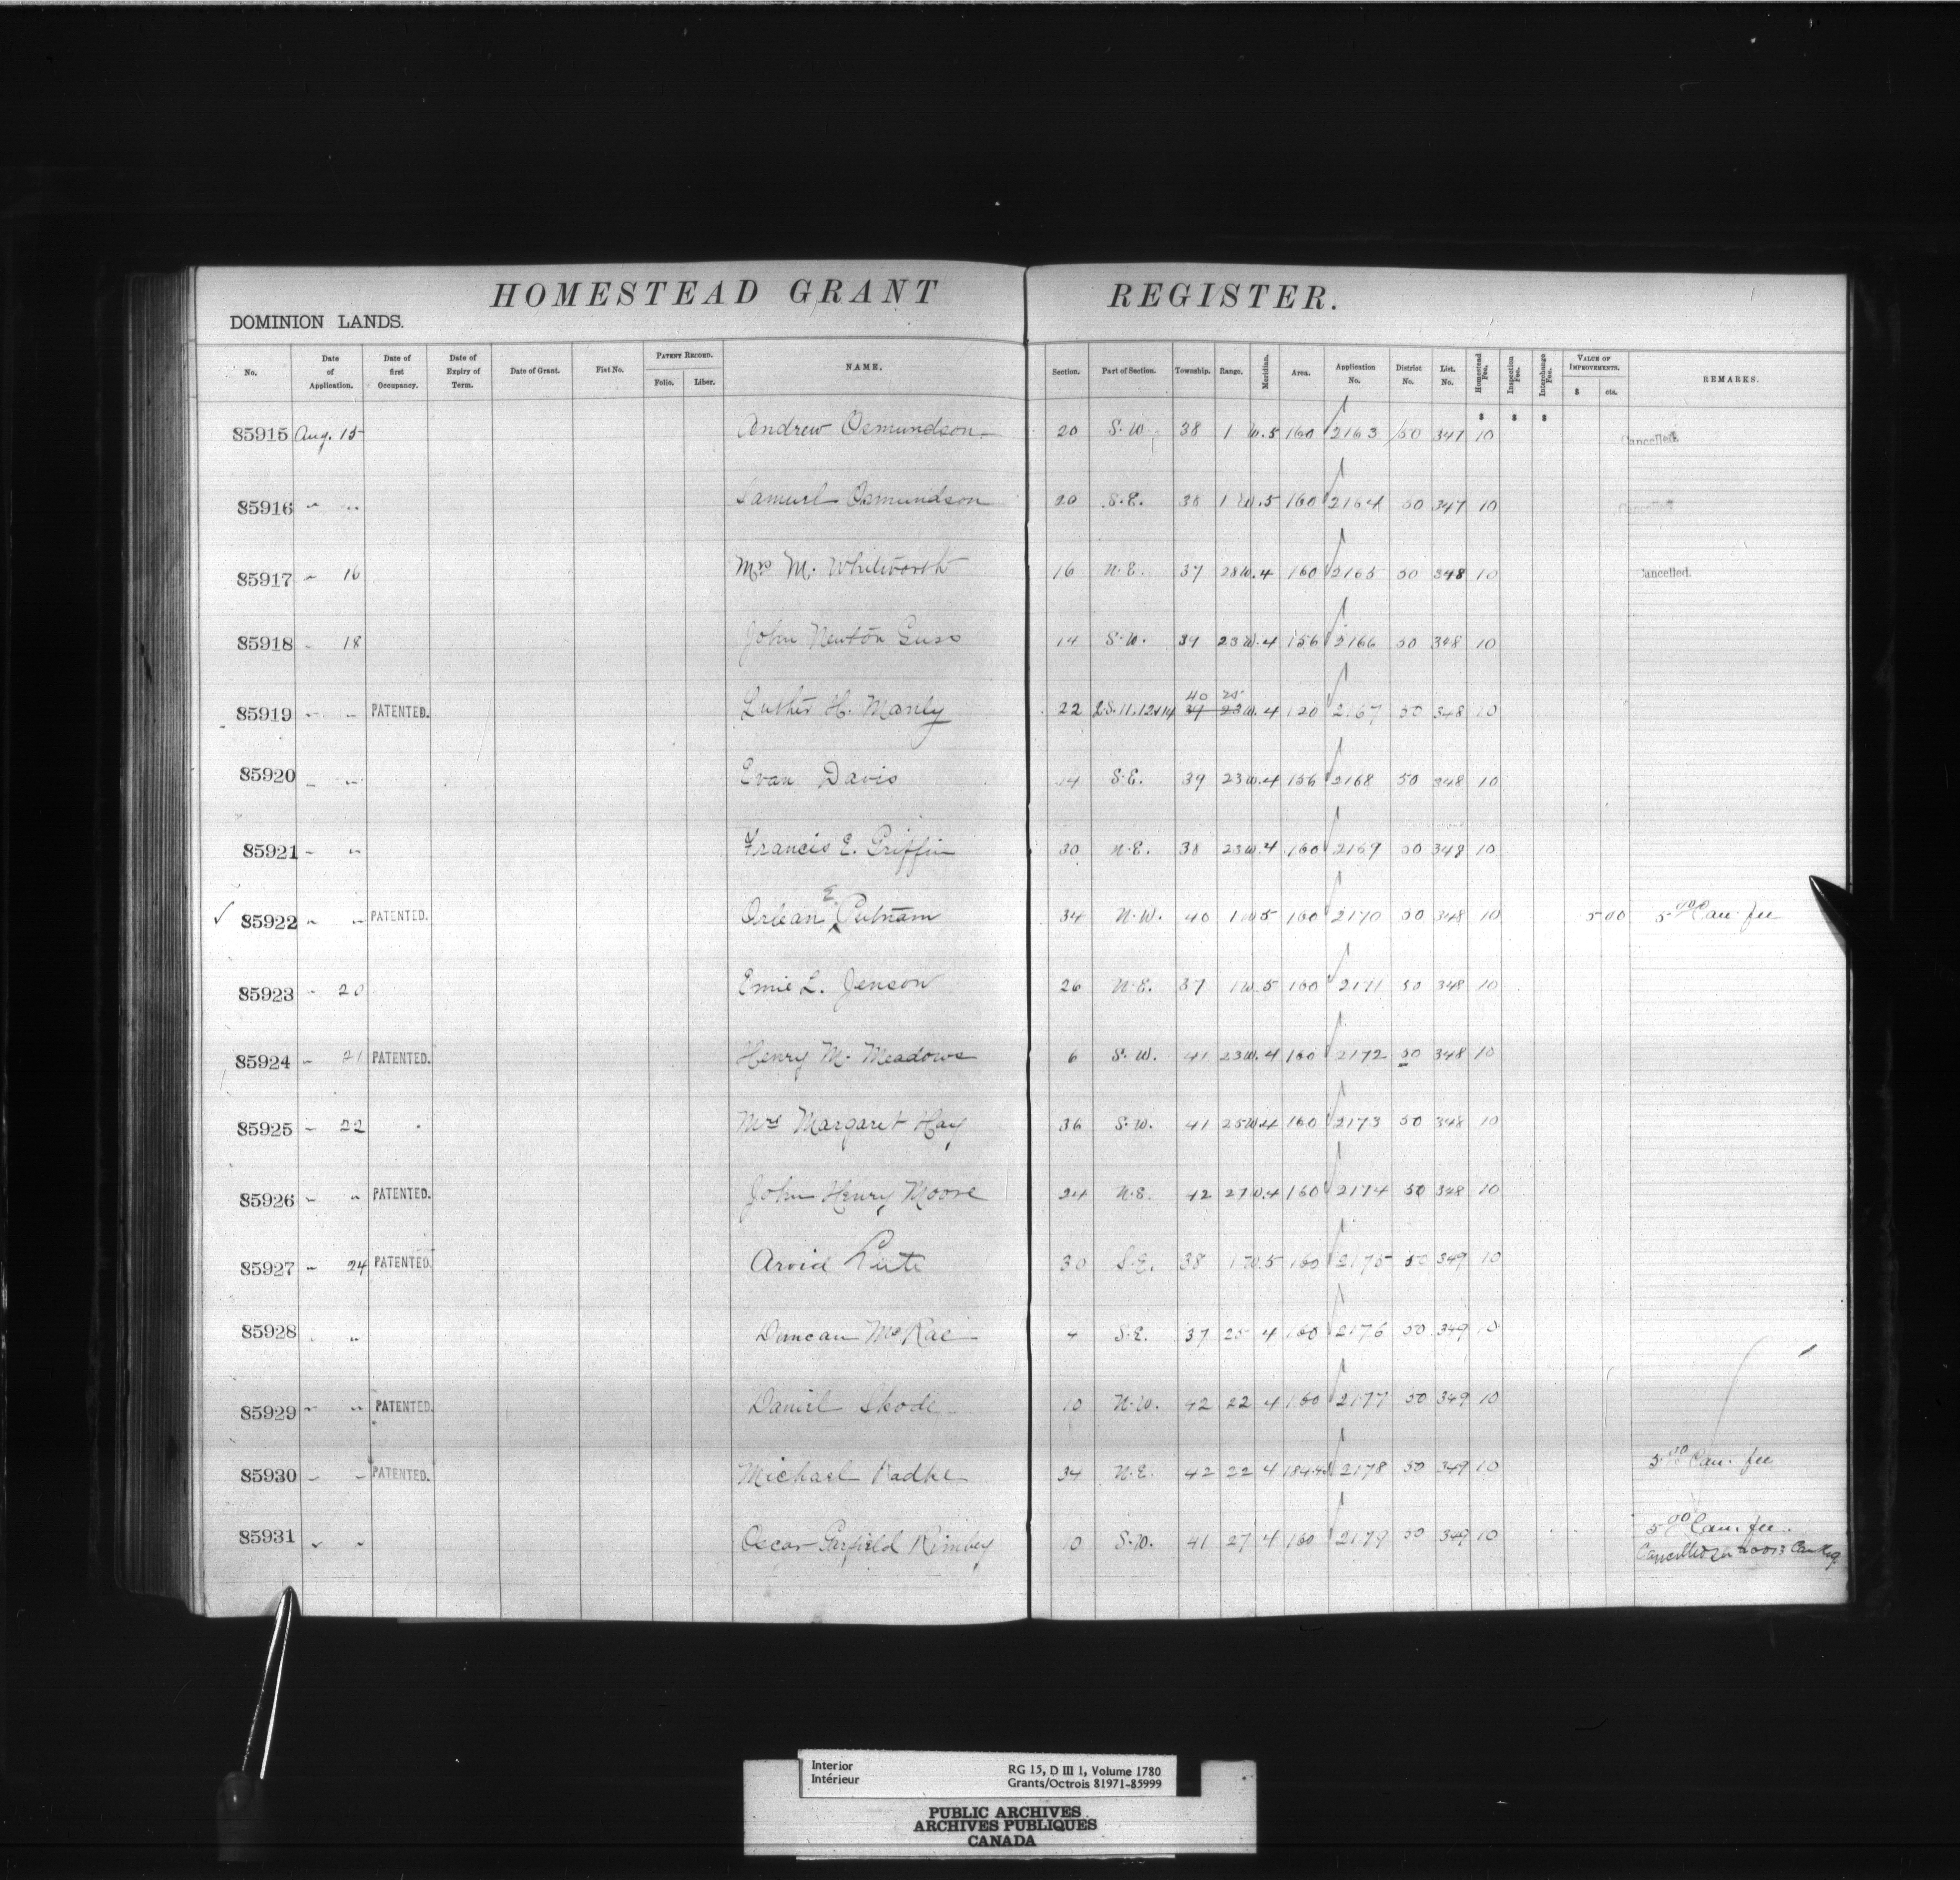 HOMESTEAD GRANT REGISTER.
DOMINION LANDS.
No. Date of Application. Date of first Occupancy. Date of Expiry of Term. Date of Grant. Fiat No. PATENT RECORD. Folio. Liber. NAME. Section. Part of Section. Township. Range. Meridian. Area. Application No. District No. List. No. Homestead Fee. Inspection Fee. Interchange Fee. VALUE OF IMPROVEMENTS. $ cts. REMARKS.
$ $ $
85915 Aug. 15 Andrew Osmundson 20 S.W. 38 1 W.5 160 2163 50 347 10 Cancelled.
85916 " " Samuel Osmundson 20 S.E. 38 1 W.5 160 2164 50 347 10 Cancelled.
85917 " 16 Mrs M. Whitworth 16 N.E. 37 28 W.4 160 2165 50 348 10 Cancelled.
85918 " 18 John Newton 14 S.W. 39 23 W.4 156 2166 50 348 10
40 25
85919 " " PATENTED. Luther H. Manly 22 L.S. 11, 12 & 14 39 23 W.4 120 2167 50 348 10
85920 " " Evan Davis 14 S.E. 39 23 W.4 156 2168 50 348 10
85921 " " Francis E. Griffin 30 N.E. 38 23 W.4 160 2169 50 348 10
E.
✓ 85922 " " PATENTED. Orlean Putnam 34 N.W. 40 1 W 5 160 2170 50 348 10 5 00 5.00 Can. fee
85923 " 20 Emie L. Jenson 26 N.E. 37 1 W.5 160 2171 50 348 10
85924 " 21 PATENTED. Henry M. Meadows 6 S.W. 41 23 W.4 160 2172 50 348 10
85925 " 22 Mrs Margaret Hay 36 S.W. 41 25 W.4 160 2173 50 348 10
85926 " " PATENTED. John Henry Moore 24 N.E. 42 27 W.4 160 2174 50 348 10
85927 " 24 PATENTED. Arvid 30 S.E. 38 1 W.5 160 2175 50 349 10
85928 " " Duncan McRae 4 S.E. 37 25 4 160 2176 50 349 10
85929 " " PATENTED. Daniel Skode 10 N.W. 42 22 4 160 2177 50 349 10
85930 " " PATENTED. Michael Radke 34 N.E. 42 22 4 2178 50 349 10 5.00 Can. fee
85931 " " Oscar Garfield Rimbey 10 S.W. 41 27 4 160 2179 50 349 10 5.00 Can. fee.
Cancelled
Interior RG 15, D III 1, Volume 1780
Intérieur Grants/Octrois 81971-85999
PUBLIC ARCHIVES
ARCHIVES PUBLIQUES
CANADA